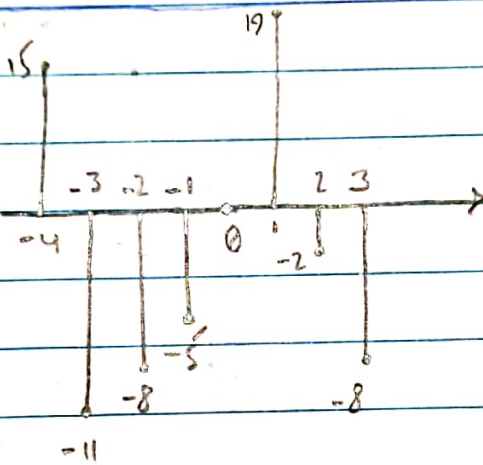 19
15
-3 -2 -1 2 3
-4 0 1
-2
-5
-8 -8
-11